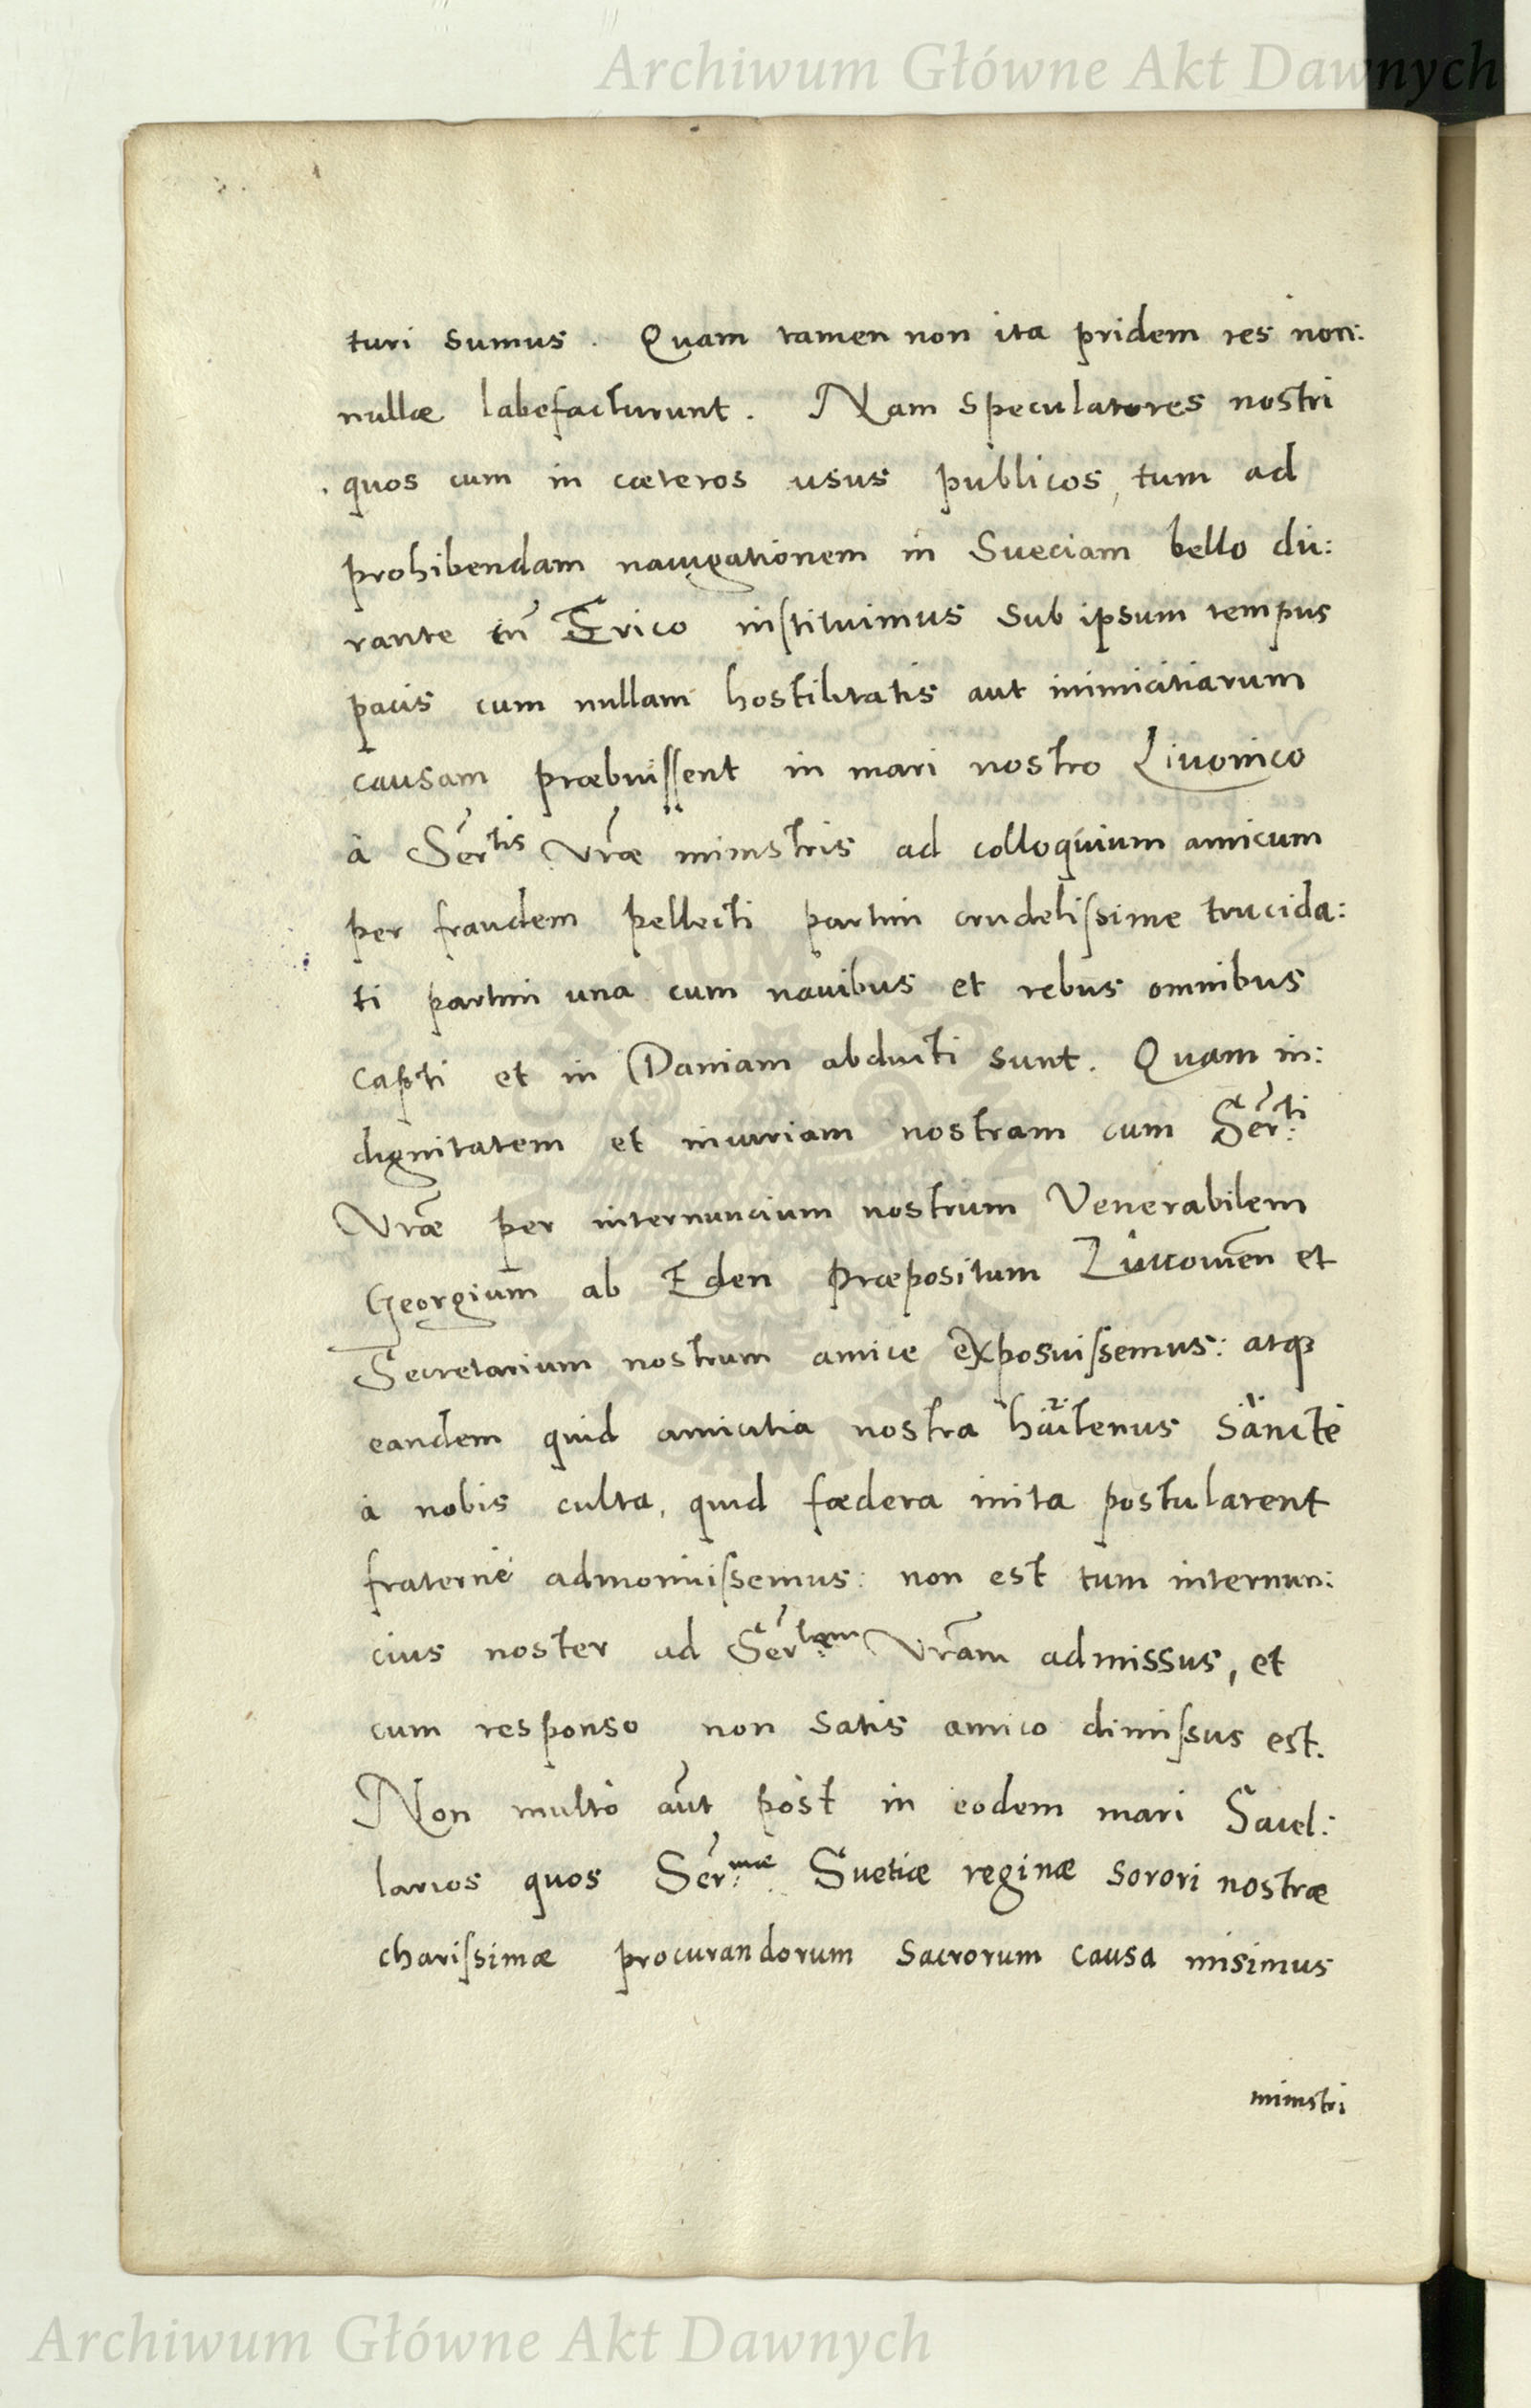 Archiwum Główne Akt Dawnych
turi sumus. Quam tamen non ita pridem res non:
nullæ labefacturunt. Nam speculatores nostri
quos cum in cæteros usus publicos, tum ad
prohibendam nauigationem in Sueciam bello du:
rante cũ Erico instituimus sub ipsum tempus
pacis cum nullam hostilitatis aut inimicitiarum
causam præbuissent in mari nostro Liuonico
à Sertis Vræ ministris ad colloquium amicum
per fraudem pellecti partim crudelissime trucida:
ti partim una cum nauibus et rebus omnibus
capti et in Daniam abducti sunt. Quam in:
dignitatem et iniuriam nostram cum Ser:ti
Vræ per internuncium nostrum Venerabilem
Georgium ab Eden Præpositum et
Secretarium nostrum amice exposuissemus: atq3
eandem quid amicitia nostra hactenus sancte
à nobis culta, quid fœdera inita postularent
fraterne admonuissemus: non est tum internun:
cius noster ad Sertem Vram admissus, et
cum responso non satis amico dimissus est.
Non multò aut pòst in eodem mari Sacel:
larios quos Ser:mæ Suetiæ reginæ sorori nostræ
charissimæ procurandorum sacrorum causa misimus
ministri
Archiwum Główne Akt Dawnych